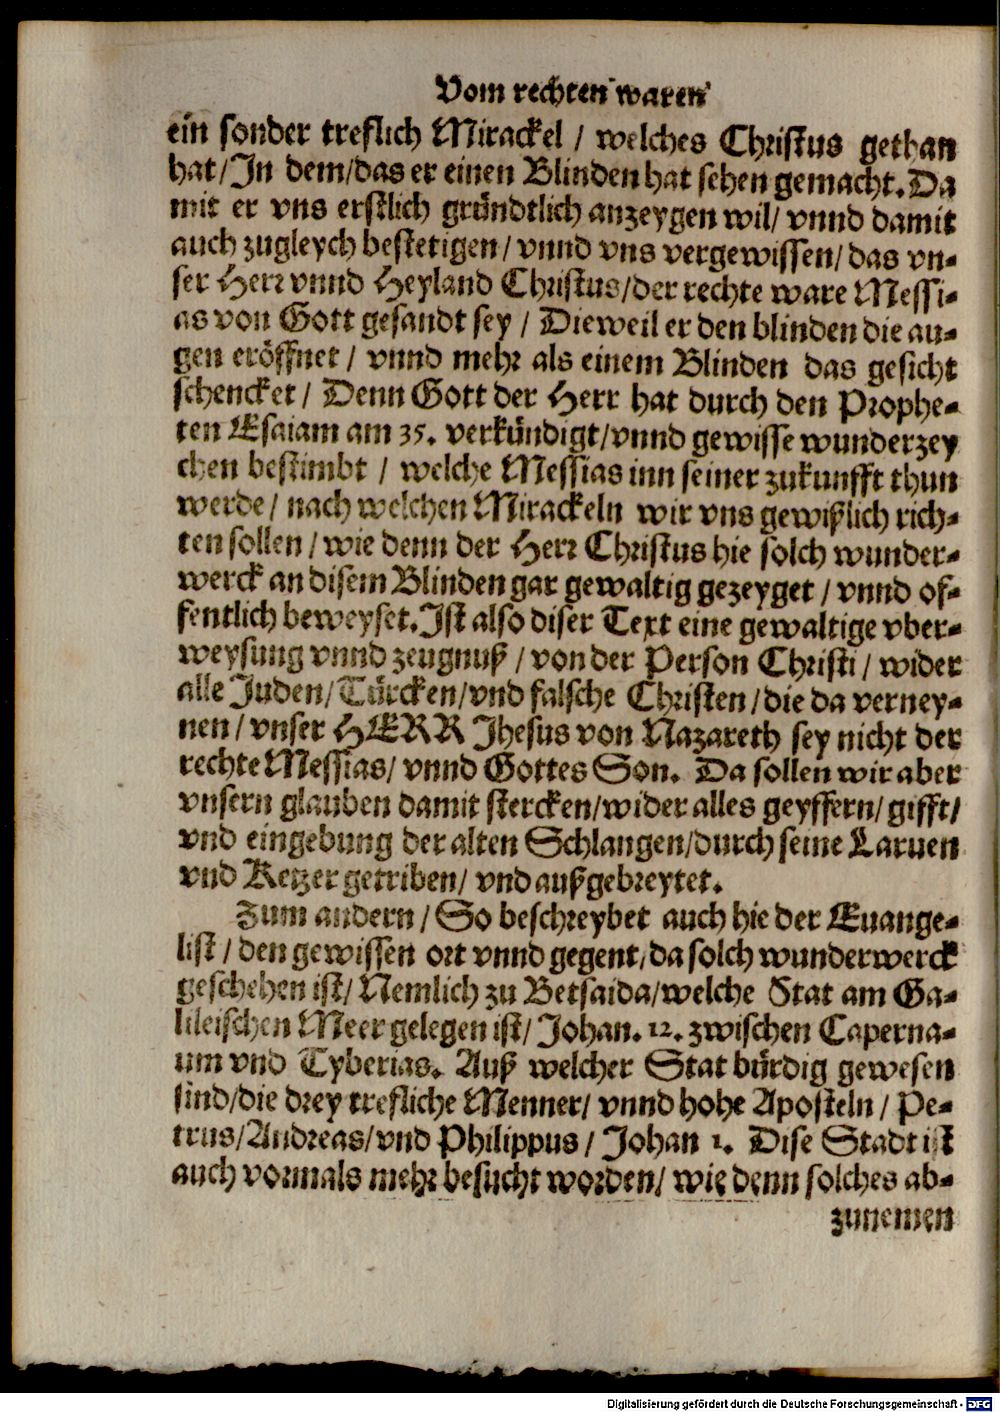 Vom rechten waren
ein sonder treflich Mirackel / welches Christus gethan
hat / In dem / das er einen Blinden hat sehen gemacht. Da
mit er vns erstlich gründtlich anzeygen wil / vnnd damit
auch zugleych bestetigen / vnnd vns vergewissen / das vn-
ser Herr vnnd Heyland Christus / der rechte ware Messi-
as von Gott gesandt sey / Dieweil er den blinden die au-
gen eröffnet / vnnd mehr als einem Blinden das gesicht
schencket / Denn Gott der Herr hat durch den Prophe-
ten Esaiam am 35. verkündigt / vnnd gewisse wunderzey
chen bestimbt / welche Messias inn seiner zukunfft thun
werde / nach welchen Mirackeln wir vns gewißlich rich-
ten sollen / wie denn der Herr Christus hie solch wunder-
werck an disem Blinden gar gewaltig gezeyget / vnnd of-
fentlich beweyset. Ist also diser Text eine gewaltige vber-
weysung vnnd zeugnuß / von der Person Christi / wider
alle Juden / Türcken / vnd falsche Christen / die da verney-
nen / vnser HERR Jhesus von Nazareth sey nicht der
rechte Messias / vnnd Gottes Son. Da sollen wir aber
vnsern glauben damit stercken / wider alles geyffern / gifft /
vnd eingebung der alten Schlangen / durch seine Laruen
vnd Ketzer getriben / vnd außgebreytet.
Zum andern / So beschreybet auch hie der Euange-
list / den gewissen ort vnnd gegent / da solch wunderwerck
geschehen ist / Nemlich zu Betsaida / welche Stat am Ga-
lileischen Meer gelegen ist / Johan. 12. zwischen Caperna-
um vnd Tyberias. Auß welcher Stat bürdig gewesen
sind / die drey trefliche Menner / vnnd hohe Aposteln / Pe-
trus / Andreas / vnd Philippus / Johan 1. Dise Stadt ist
auch vormals mehr besucht worden / wie denn solches ab-
zunemen
Digitalisierung gefördert durch die Deutsche Forschungsgemeinschaft - DFG